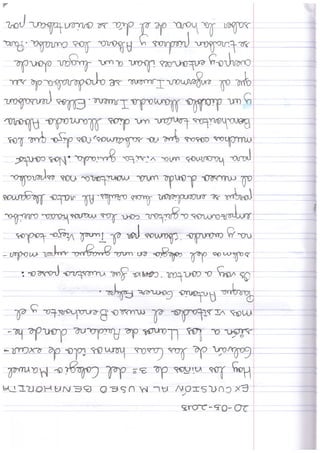 20-05-2013
EXCURSIÓN AL MUSEO BENAHORITA
Hoy los niños de 3º del Colegio Manuel
Galván de las Casas hemos ido de excur-
sión a los Llanos de Aridane donde he-
mos visitado el museo Benahorita y el
Parque Antonio Gómez Felipe.
Os voy a contar cómo fue nuestro paseo:
salimos del colegio en una guagua super moder-
na y cuando íbamos por el Tunel Viejo todos
empezamos a gritar con las manos hacia arriba
porque se encendieron luces azules. Al rato llegamos
al museo donde una monitora nos esperaba
para hacernos una visita guiada. Nos contó
muchas cosas que no sabíamos, nos dijo que los
Benahoritas tenían un dios llamado Abora
y un diablo llamado Iruene. Ellos pensaban
que al enfermar Iruene se apoderaba de su
cuerpo y entonces iban a un lugar donde
se tiraban piedras y Abora los curaba. Para
saber la hora de el día se orientaban por